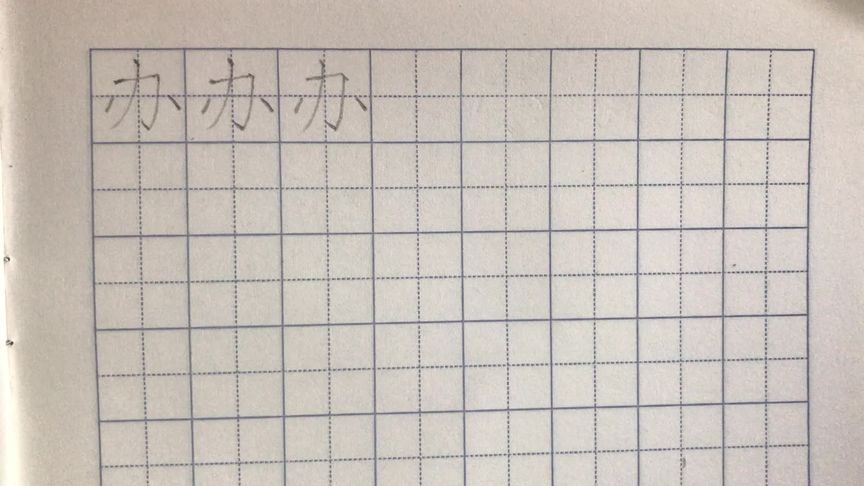 办办办